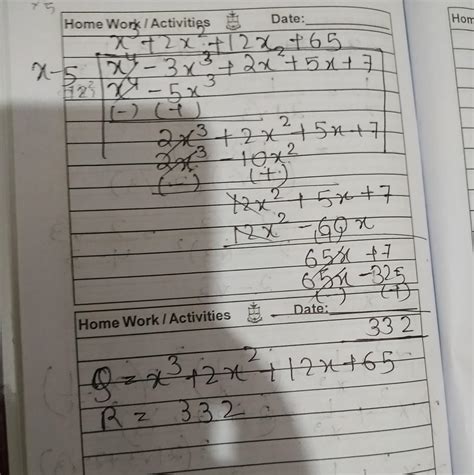 Home Work / Activities Date:
x³ + 2x² + 12x + 65
x - 5 x⁴ - 3x³ + 2x² + 5x + 7
x⁴ - 5x³
(-) (+)
2x³ + 2x² + 5x + 7
2x³ - 10x²
(-) (+)
12x² + 5x + 7
12x² - 60x
65x + 7
65x - 325
(-) (+)
Home Work / Activities Date:
332
Q = x³ + 2x² + 12x + 65
R = 332